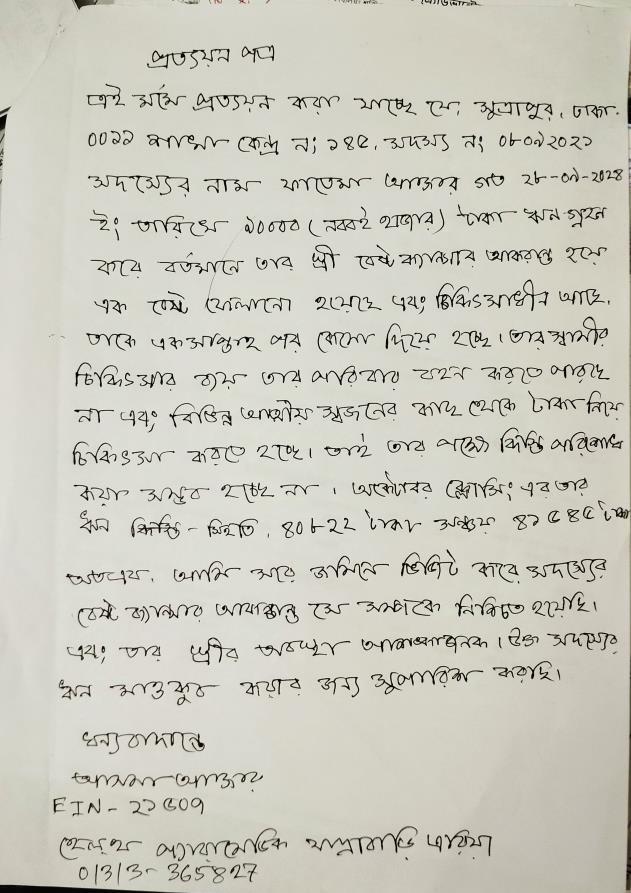 প্রত্যয়ন পত্র
এই মর্মে প্রত্যয়ন করা যাচ্ছে যে, সুত্রাপুর, ঢাকা
০০১১ শাখা কেন্দ্র নং ১৪৫, সদস্য নং ০৮০৯২০২১
সদস্যের নাম ফাতেমা আক্তার গত ২৮-০৭-২০২৪
ইং তারিখে ৯০০০০ (নব্বই হাজার) টাকা ঋন গ্রহন
করে বর্তমানে তার স্ত্রী বেষ্ট ক্যান্সার আক্রান্ত হয়ে
এক বেষ্ট ফেলানো হয়েছে এবং চিকিৎসাধীন আছে,
তাকে এক সাপ্তাহ পর কেমো দিয়ে হচ্ছে। তার স্বামীর
চিকিৎসার ব্যয় তার পরিবার বহন করতে পারছে
না এবং বিভিন্ন আত্মীয় স্বজনের কাছ থেকে টাকা নিয়ে
চিকিৎসা করতে হচ্ছে। তাই তার পক্ষে কিস্তি পরিশোধ
করা সম্ভব হচ্ছে না। অক্টোবর ক্লোসিং এর তার
ঋন স্থিতি, ৪০৮২২ টাকা সঞ্চয় ৪১৫৪৫ টাকা
অতএব, আমি সরে জমিনে ভিজিট করে সদস্যের
বেষ্ট ক্যান্সার আক্রান্ত সে সম্পকে নিশ্চিত হয়েছি।
এবং তার স্ত্রীর অবস্থা আশংকাজনক। উক্ত সদস্যের
ঋন মাওকুব করার জন্য সুপারিশ করছি।
ধন্যবাদান্তে
আসমা আক্তার
EIN - ২১৫০৭
হেলথ প্যারামেডিক যাত্রাবাড়ি এরিয়া
01313-365827